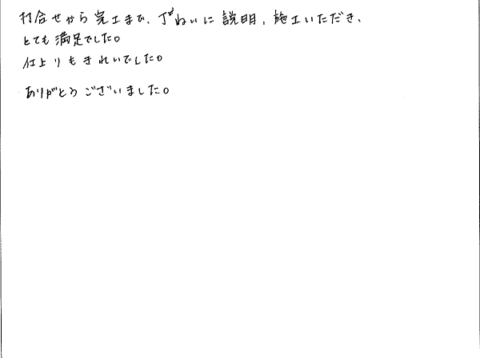 打合せから完工まで、丁ねいに説明、施工いただき、
とても満足でした。
仕上りもきれいでした。
ありがとうございました。